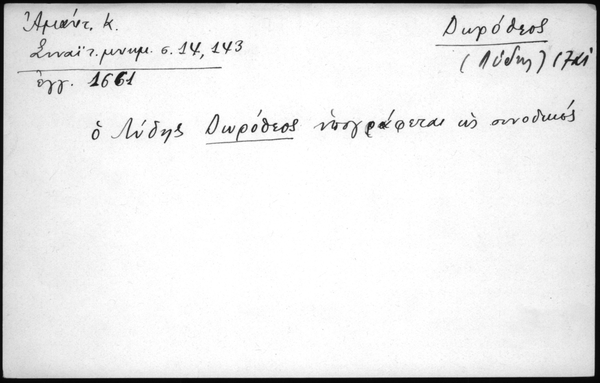 Ἀμάντ, Κ.
Σιναϊτ. μνημ. σ. 14, 143
ἔγγ. 1661
Δωρόθεος
(Λύδης)
ὁ Λύδης Δωρόθεος ὑπογράφεται ὡς συνοδικός